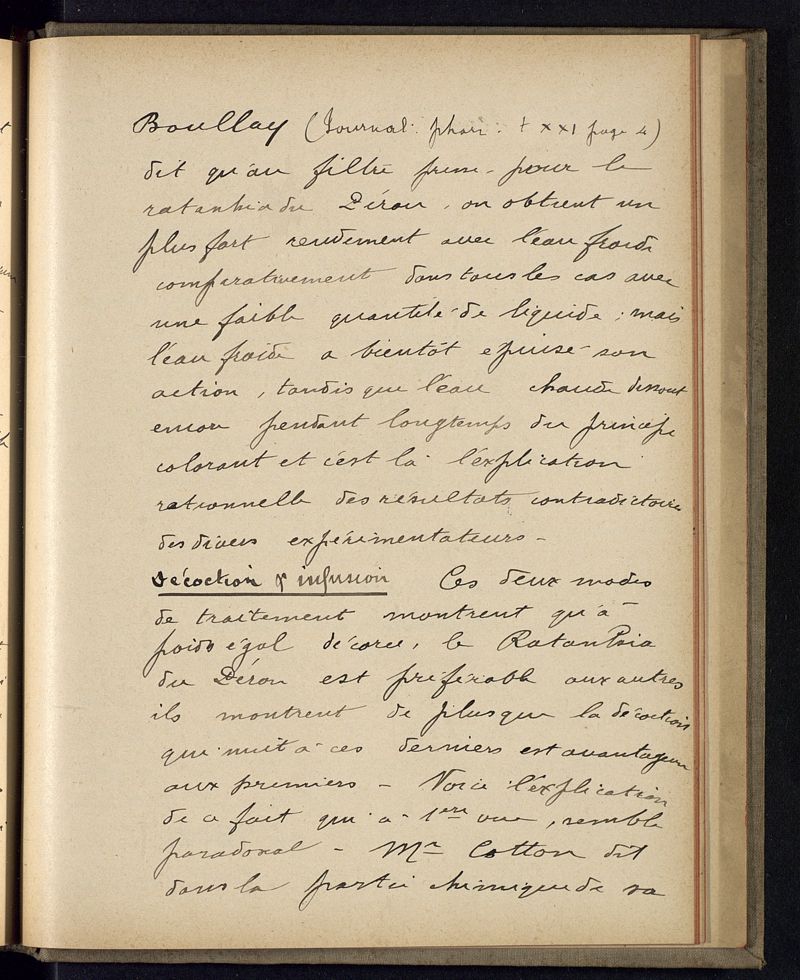 Boullay (Journal. phar. t XXI page 4)
dit qu'au filtre presse, pour le
ratanhia du Pérou, on obtient un
plus fort rendement avec l'eau froide
comparativement dans tous les cas avec
une faible quantité de liquide ; mais
l'eau froide a bientôt épuisé son
action, tandis que l'eau chaude dissout
encore pendant longtemps du principe
colorant et c'est là l'explication
rationnelle des résultats contradictoire
des divers expérimentateurs -
Décoction & infusion Ces deux modes
de traitement montrent qu'à
poids égal d'écorce, le Ratanhia
du Pérou est préférable aux autres
ils montrent de plus que la décoction
qui nuit à ces derniers est avantageuse
aux premiers - Voici l'explication
de ce fait qui à 1ere vue, semble
paradoxal - Mr Cotton dit
dans la partie chimique de sa